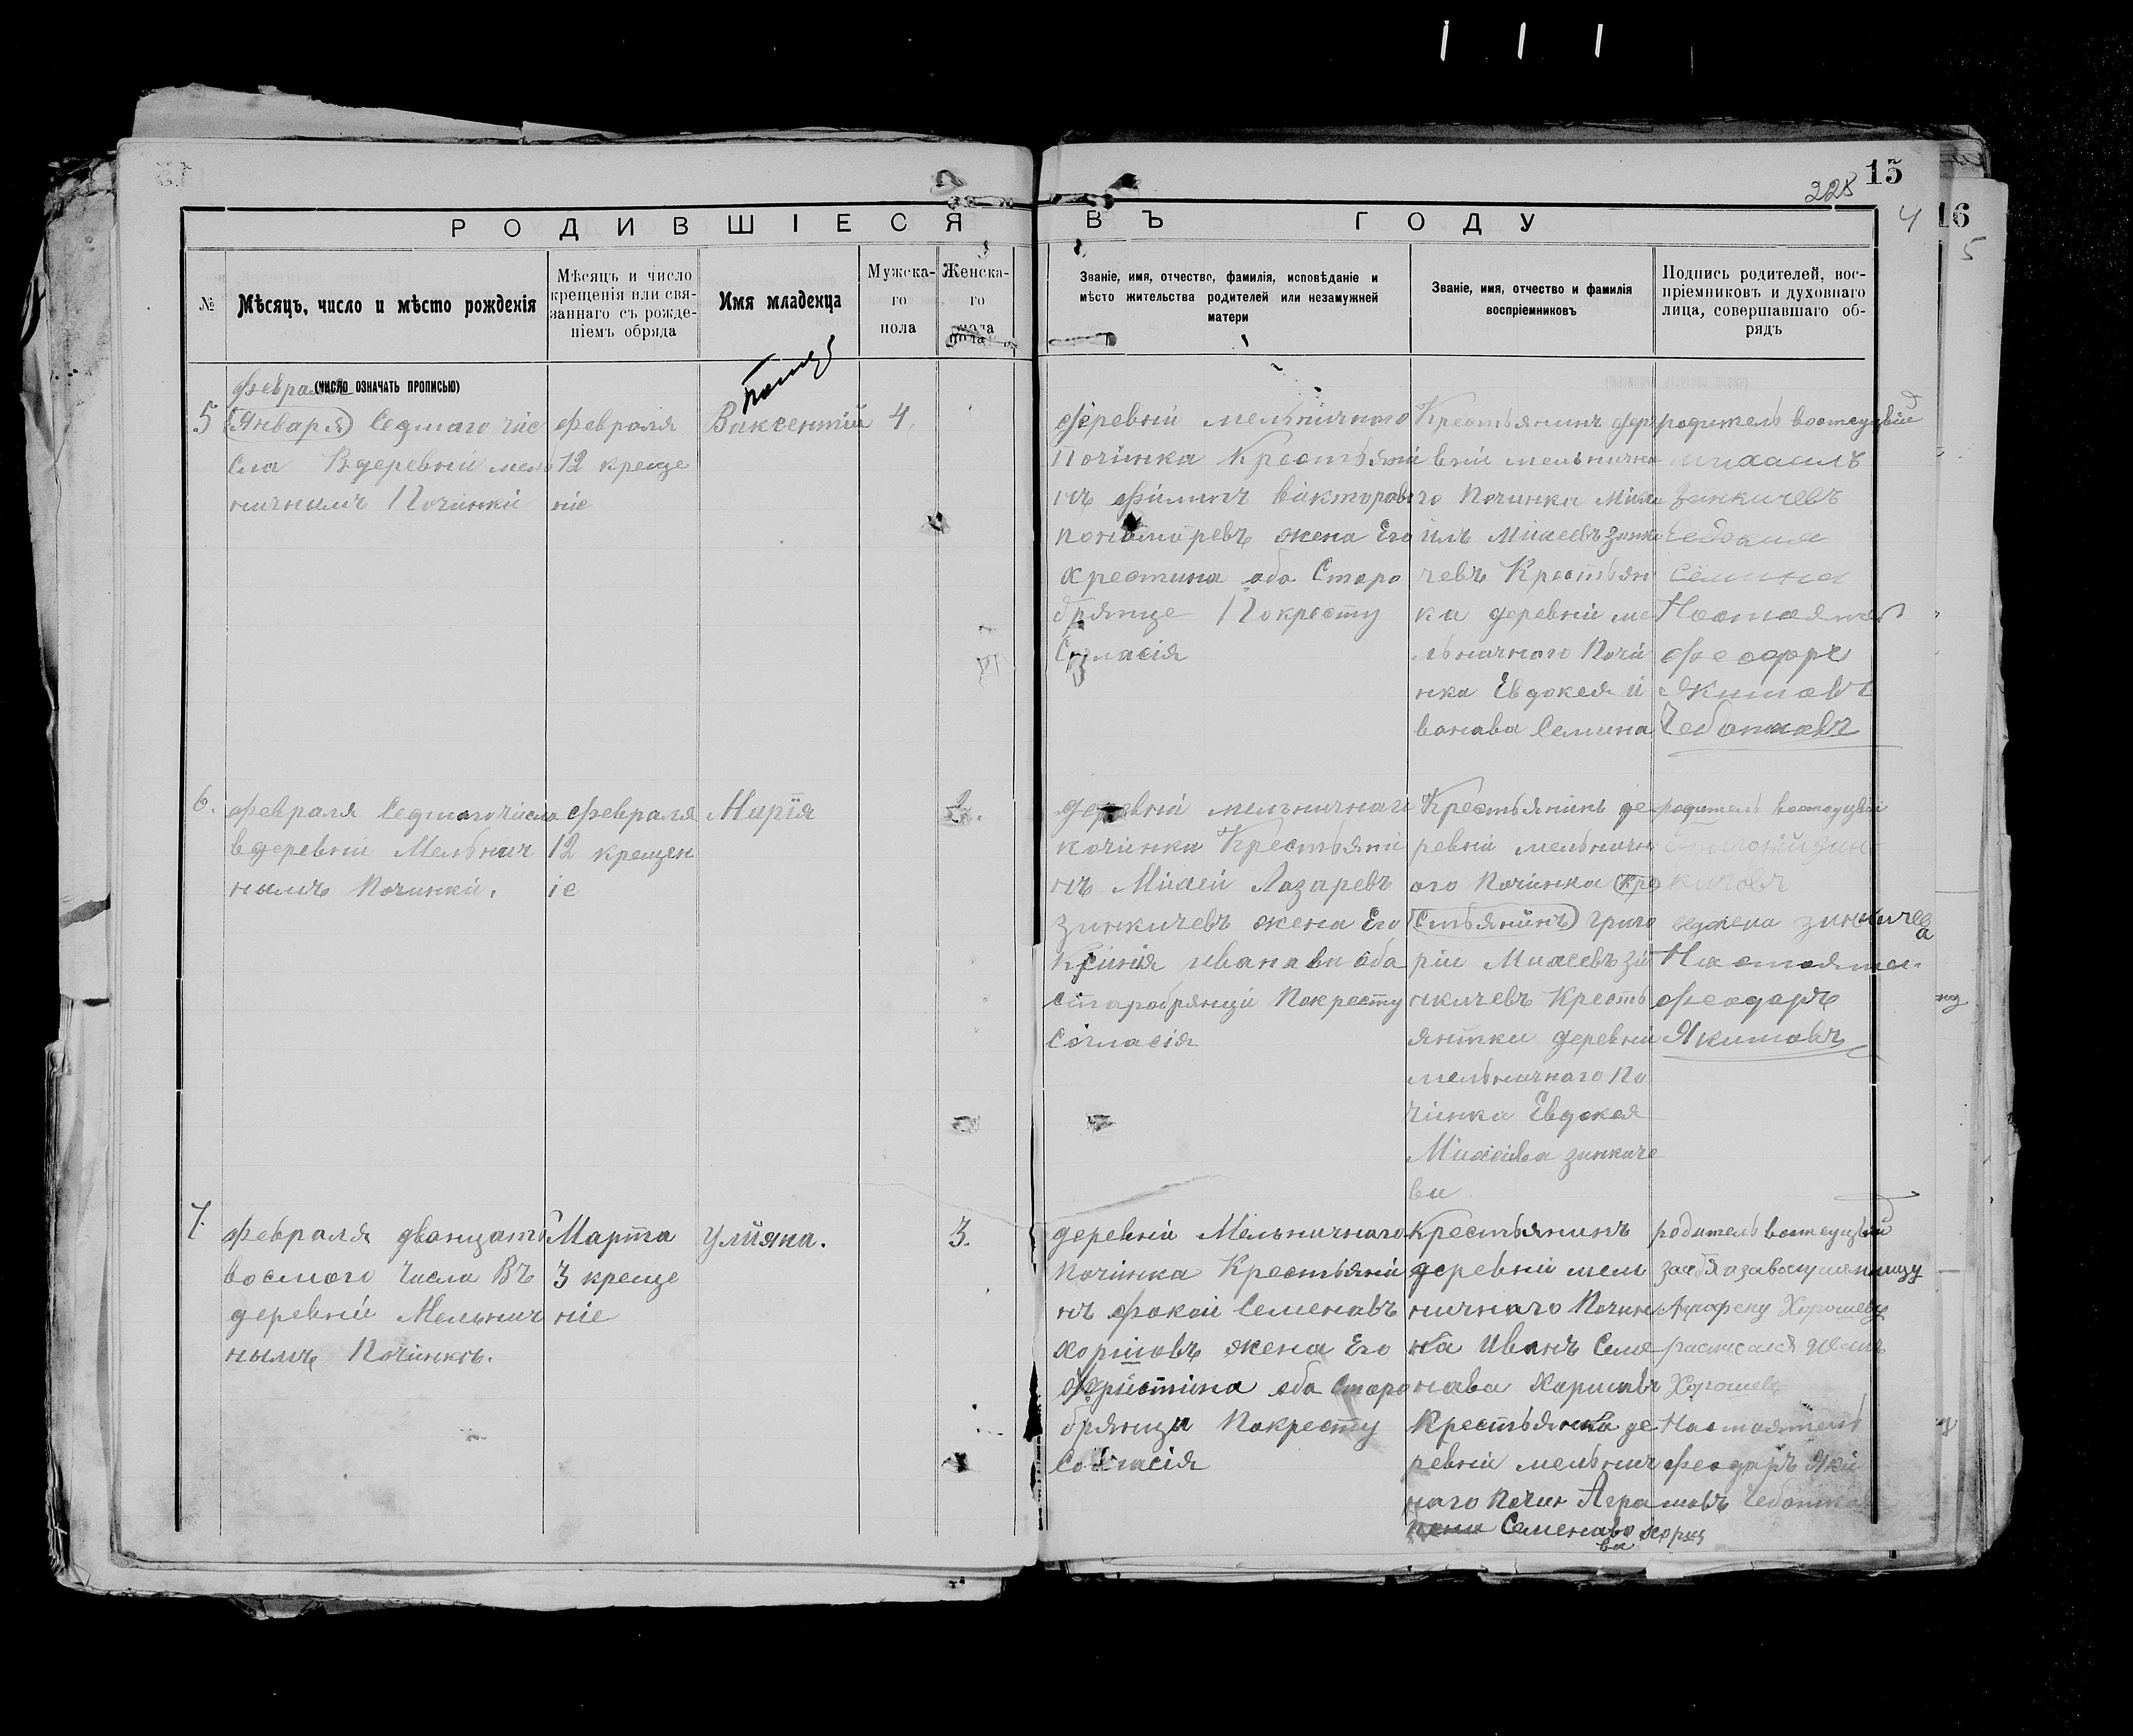 15
228
4
16
5
РОДИВШІЕСЯ ВЪ ГОДУ
№
Мѣсяцъ, число и мѣсто рожденія
Мѣсяцъ и число
крещенія или свя-
заннаго съ рожде-
ніемъ обряда
Имя младенца
Мужска-
го
пола
Женска-
го
пола
Званіе, имя, отчество, фамилія, исповѣданіе и
мѣсто жительства родителей или незамужней
матери
Званіе, имя, отчество и фамилія
воспріемниковъ
Подпись родителей, вос-
пріемниковъ и духовнаго
лица, совершавшаго об-
рядъ
(число означать прописью)
5
февраля
(Января) Седмаго чис
сла Вдеревни мель
ничнымъ Починки
февраля
12 креще
ніе
Ваксентий
4.
деревни мельничного
Починка Крестьяни
нъ филипъ викторовъ
пономоревъ жена Его
хрестина оба Старо
брянце Покресту
Сгласія
Крестьянинъ дер
вни мельнична
го Починка Миха
илъ Михеевъ Зинки
чевъ Крестьян
ка деревни ме
льничнаго Почи
нка Евдокея И
ванава Семина
родитель
михаилъ
Зинкичевъ
Евдокия
Семина
феодоръ
Якимовъ
6.
февраля Седмаго числа
вдеревни Мельнич
нымъ Починки.
февраля
12 крещен
іе
Мирія
2.
деревни мельничнаго
починка Крестьяни
нъ Михеи Лазаревъ
Зинкичевъ жена Его
Ксиния иванавна оба
старобрянци Покресту
Согласія
Крестьянинъ де
ревни мельничн
ого Починка (Кре
стьянинъ) григо
рии Михеевъ Зи
нкичевъ Кресть
янтки деревни
мельничнаго По
чинка Евдокея
Михеива зинкиче
ва
родитель
кичовъ
феодаръ
Якимовъ
7.
февраля дванцать
восмого числа Въ
деревни Мельнич
нымъ Починкъ.
Марта
3 креще
ніе
Улияна.
3.
деревни Мельничнаго
Починка Крестьяни
нъ фокои Семенавъ
хоришовъ жена Его
хрнстина оба старо
брянци Покресту
Согласія
Крестьянинъ
деревни мель
ничнаго Почин
ка Иванъ Семе
нава Харишвъ
Крестьянка де
ревни мельнич
наго Почин Агра
пена Семенаво хориш
ва
родитель
Аграфену Хорошеву
росписался Иванъ
Хорошевъ
Настоятель
феодаръ Яки
мовъ Чеботков